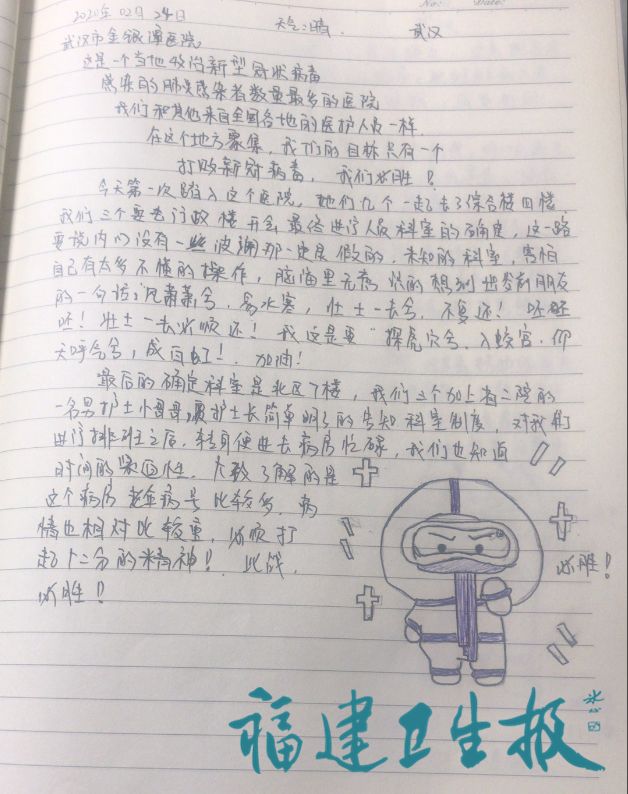 No: Date:
2020年02月24日 天气:晴 武汉
武汉市金银潭医院
这是一个当地收治新型冠状病毒
感染的肺炎感染者数量最多的医院
我们和其他来自全国各地的医护人员一样.
在这个地方聚集,我们的目标只有一个
打败新冠病毒,我们必胜!
今天第一次踏入这个医院,她们九个一起去了综合楼四楼
我们三个要去门政楼开会最终进行人员科室的确定,这一路
要说内心没有一些波澜那一定是假的,未知的科室,害怕
自己有太多不懂的操作,脑海里无病 的想到出发前朋友
的一句话:风萧萧兮,易水寒,壮士一去兮,不复还!呸呸
呸!壮士一去必顺还!我这是要"探虎穴兮,入蛟宫,仰
天呼气兮,成白虹!.加油!
最后的确定科室是北区7楼,我们三个加上省二院的
一名男护士小哥哥,夏护士长简单明了的告知科室制度,对我们
进行排班之后,转身便进去病房忙碌,我们也知道
时间的紧迫性.大致了解的是
这个病房老年病号比较多,病
情也相对比较重,必须打
起十二分的精神!此战,
必胜!
必胜!
福建卫生报